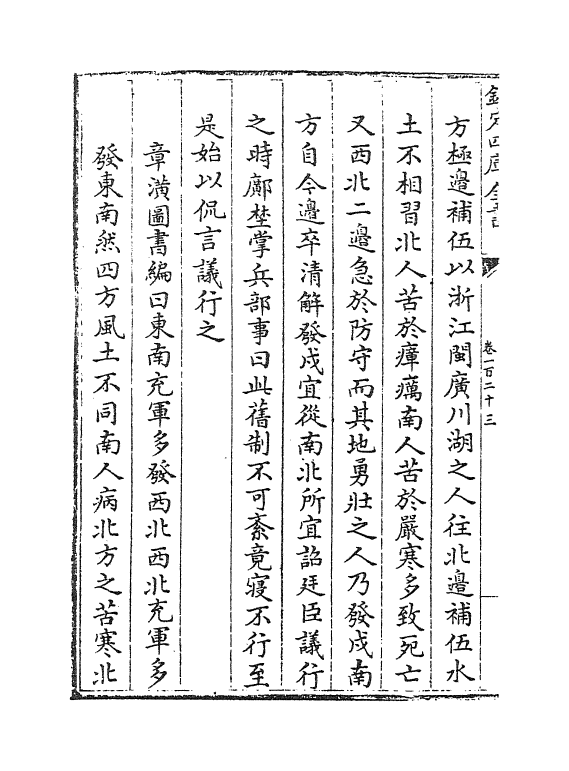 欽定四庫全書
卷一百二十三
方極邊補伍以浙江閩廣川湖之人往北邊補伍水
土不相習北人苦於瘴癘南人苦於嚴寒多致死亡
又西北二邊急於防守而其地勇壯之人乃發戍南
方自今邊卒清解發戍宜從南北所宜詔廷臣議行
之時鄺埜掌兵部事曰此舊制不可紊竟寢不行至
是始以侃言議行之
章潢圖書編曰東南充軍多發西北西北充軍多
發東南然四方風土不同南人病北方之苦寒北